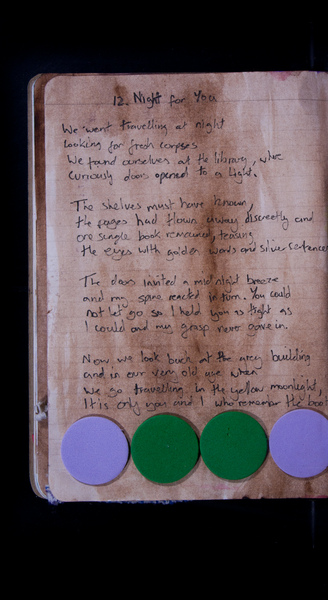 12. Night for You
We went travelling at night
looking for fresh corpses
We found ourselves at the library, where
curiously doors opened to a light.
The shelves must have known,
the pages had flown away discreetly and
one single book remained, teasing
the eyes with golden words and silver sentences
The doors invited a midnight breeze
and my spine reacted in turn. You could
not let go so I held you as tight as
I could and my grasp never gave in.
Now we look back at the grey building
and in our very old use when
we go travelling in the yellow moonlight,
It is only you and I who remember the book